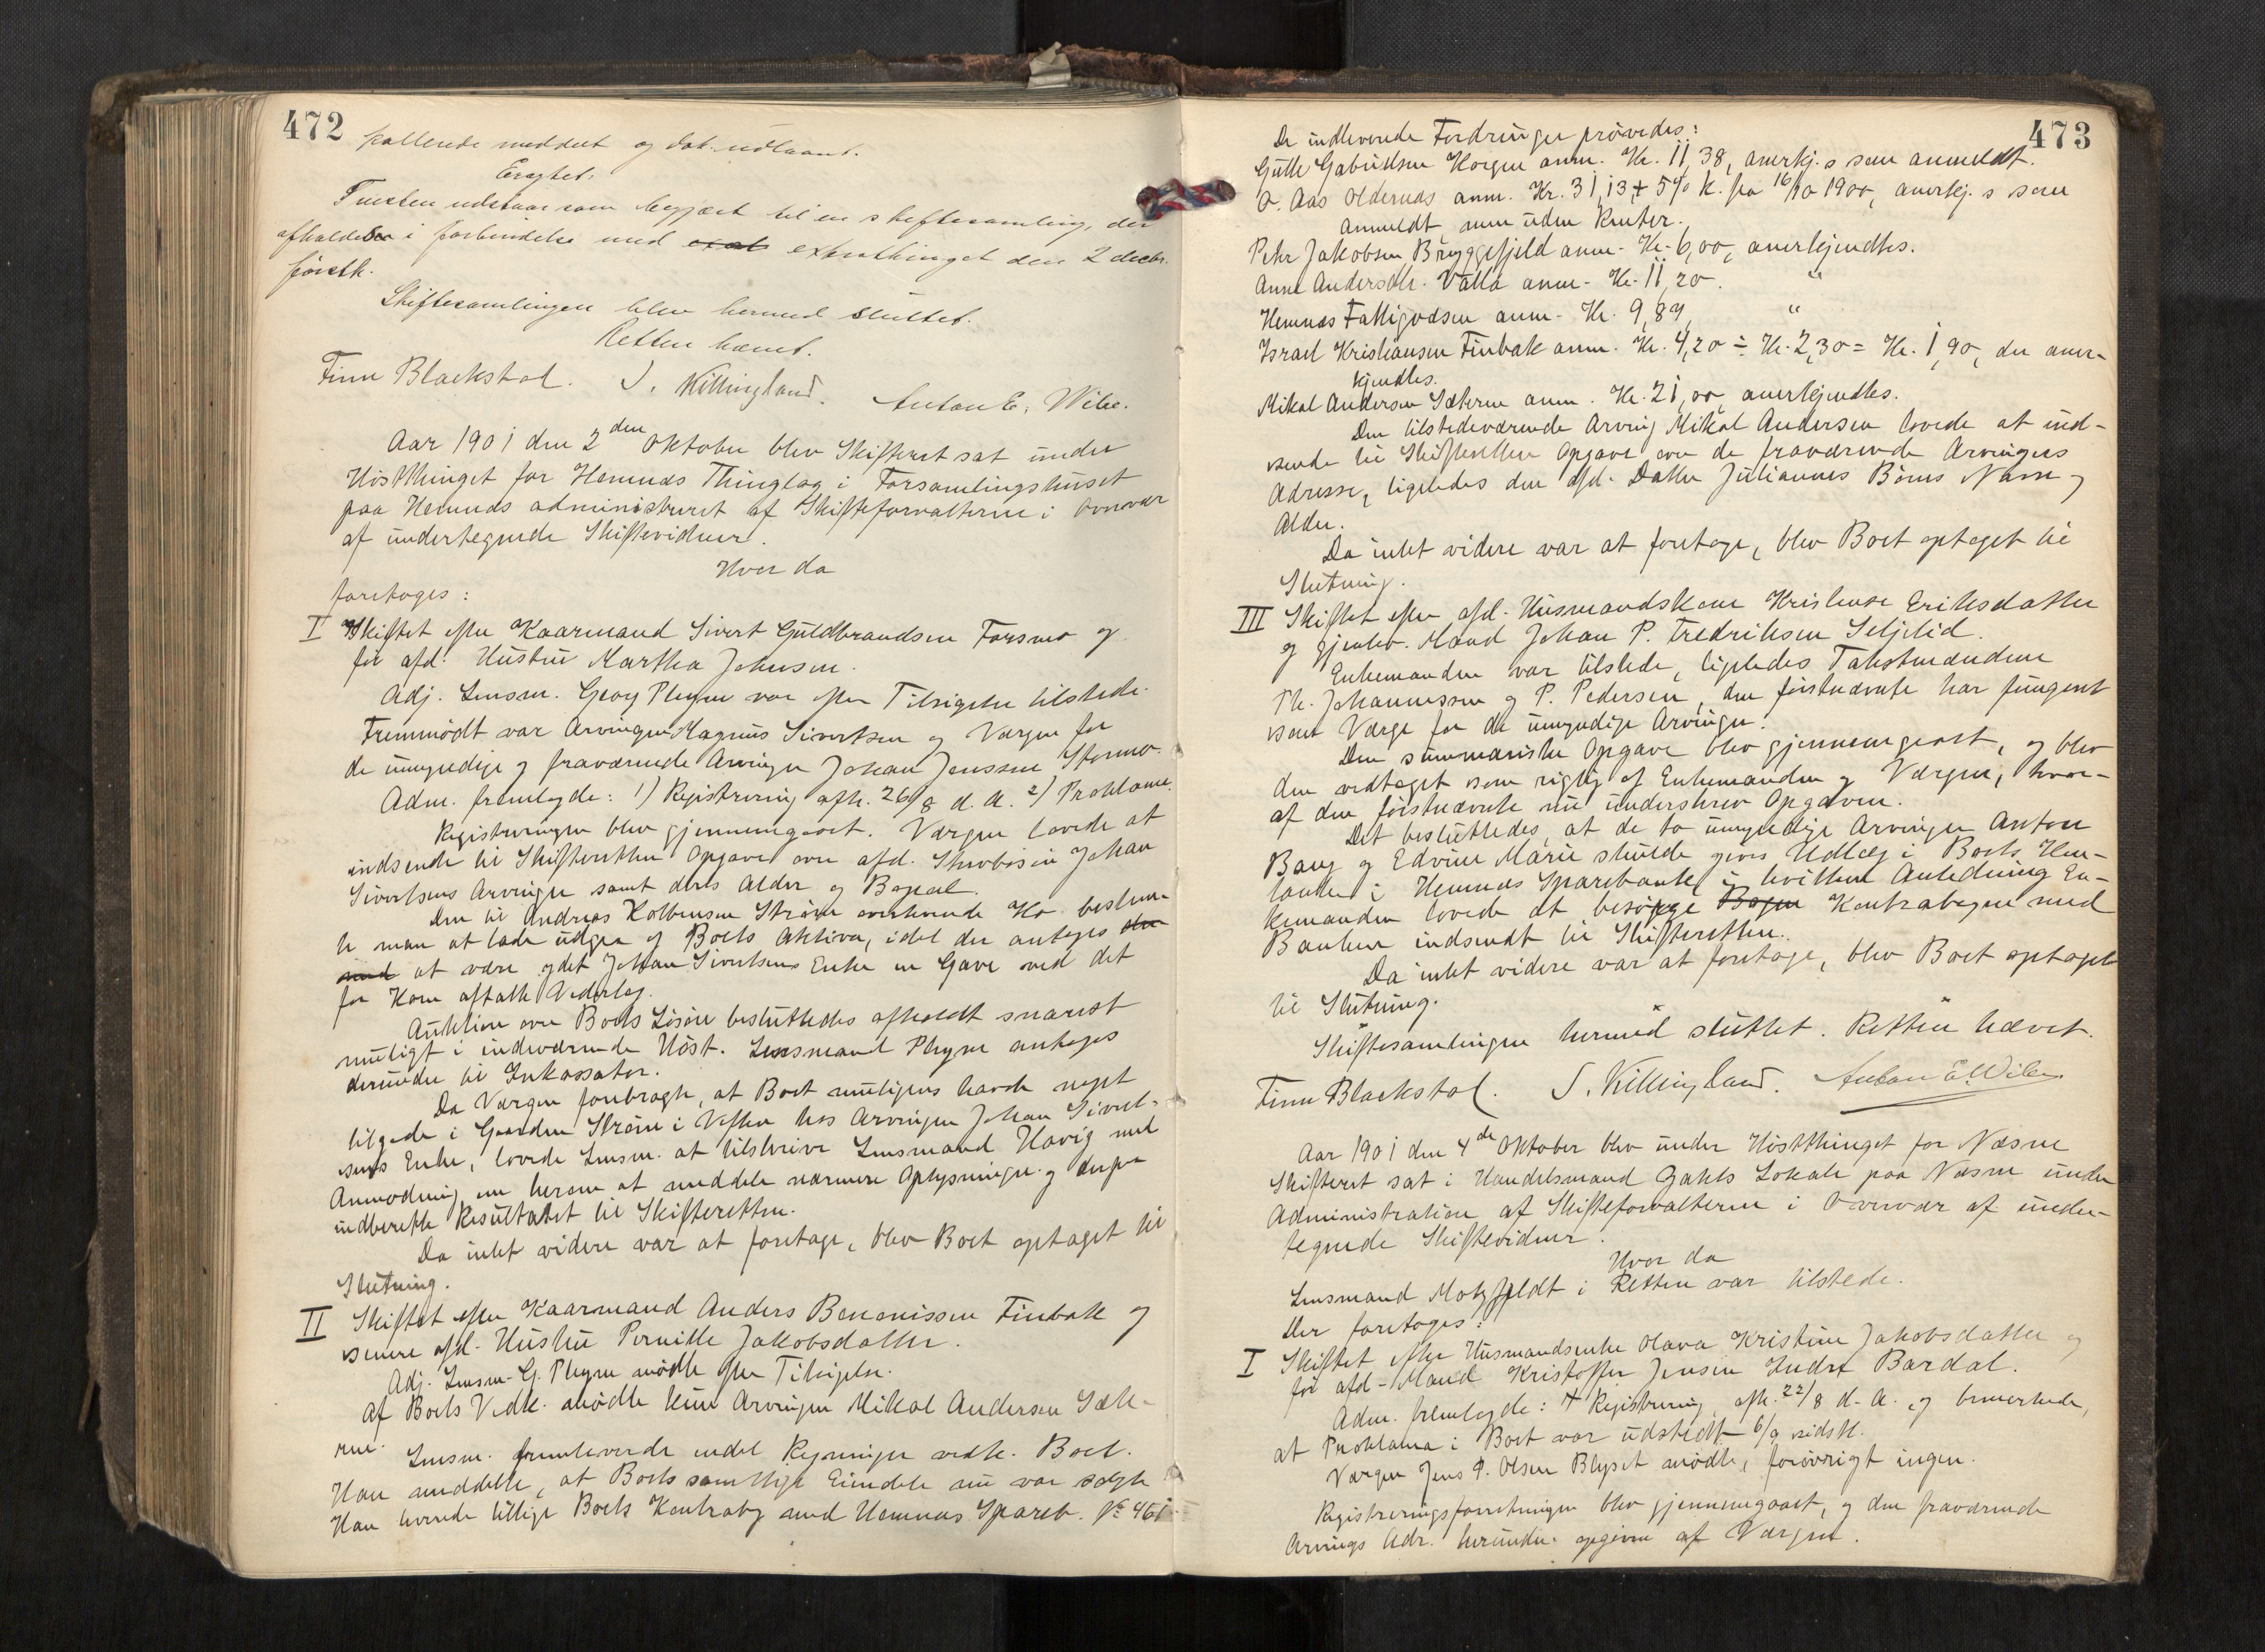 472
kallende meddelt og dok. udlaant.
Eragtet.
Tvisten udstaar som begjært til en skiftesamling, der
afholdes i forbindelse med extrathinget den 2 decbr.
førstk.
Skiftesamlingen blev hermed sluttet.
Retten hævet.
Finn Blackstad. S. Killingland. Anton E. Wibe.
Aar 1901 den 2den Oktober blev Skifteret sat under
Høstthinget for Hemnæs Thinglag i Forsamlingshuset
paa Hemnæs administreret af Skifteforvalteren i Overvær
af undertegnede Skiftevidner.
Hvor da
foretoges:
I Skiftet efter Kaarmand Sivert Guldbrandsen Forsmo og
før afd. Hustru Martha Johnsen.
Adj. Lensm. Georg Pleym var efter Tilsigelse tilstede.
Fremmødt var Arvingen Magnus Sivertsen og Værgen for
de umyndige og fraværende Arvinger Johan Jenssen
Adm. fremlagde: 1) Registrering afh. 26/8 d. A. 2) Proklama.
Registreringen blev gjennemgaaet. Værgen lovede at
indsende til Skifteretten Opgave over afd. Johan
Sivertsens Arvinger samt deres Alder og Bopæl.
Den til Andreas Kolbensen Strøm overleverede Ko bestem-
te man at lade udgaa af Boets Aktiva, idet der antoges
at være ydet Johan Sivertsens Enke en Gave ved det
for Koen aftalte Vederlag.
Auktion over Boets Løsøre besluttedes afholdt snarest
muligt i indeværende Høst. Lensmand Pleym antoges
derunder til Inkassator.
Da Værgen forebragte, at Boet muligens havde noget
tilgode i Gaarden Strøm i Vefsen hos Arvingen Johan Sivert-
sens Enke, lovede Lensm. at tilskrive Lensmand Havig med
Anmodning om herom at meddele nærmere Oplysninger og derpaa
indberette Resultatet til Skifteretten.
Da intet videre var at foretage, blev Boet optaget til
Slutning.
II Skiftet efter Kaarmand Anders Benonissen Finbak og
senere afd. Hustru Pernille Jakobsdatter.
Adj. Lensm. G. Pleym mødte efter Tilsigelse.
Af Boets Vedk. mødte kun Arvingen Mikal Andersen Sæte-
rne.
Lensm. fremleverede endel Regninger vedk. Boet.
Han meddelte, at Boets samtlige Eiendele nu var solgte
Han leverede tillige Boets Kontrabog med Hemnæs Spareb. № 461
473
De indleverede Fordringer prøvedes:
Gutle Gabrielsen Korgen anm. Kr. 11,38, anerkj.s som anmeldt.
O. Aas Oldernæs anm. Kr. 31,13 + 5% R. fra 16/10 1900, anerkj.s som
anmeldt, men uden Renter.
Petr Jakobsen Bryggefjeld anm. Kr. 6,00, anerkjendtes.
Anne Andersdtr. Valla anm. Kr. 11,20. "
Hemnæs Fattigvæsen anm. Kr. 9,89, "
Israel Kristiansen Finbak anm. Kr. 4,20 ÷ Kr. 2,30 = Kr. 1,90, der aner-
kjendtes.
Mikal Andersen Sæterne anm. Kr. 21,00, anerkjendtes.
Den tilstedeværende Arving Mikal Andersen lovede at ind-
sende til Skifteretten Opgave over de fraværende Arvingers
Adresse, ligeledes den afd. Datter Juliannes Børns Navn og
Alder.
Da intet videre var at foretage, blev Boet optaget til
Slutning.
III Skiftet efter afd. Husmandskone Kristense Eriksdatter
og gjenlev. Mand Johan P. Fredriksen Seljelid.
Enkemanden var tilstede, ligeledes Takstmændene
Th. Johannessen og P. Pedersen, den førstnævnte har fungeret
som Værge for de umyndige Arvinger.
Den summariske Opgave blev gjennemgaaet, og blev
den vedtaget som rigtig af Enkemanden og Værgen, hvor-
af den førstnævnte nu underskrev Opgaven.
Det besluttedes, at de to umyndige Arvinger Anton
Bang og Edvine Marie skulde gives Udlæg i Boets
i Hemnæs Sparebank, i hvilken Anledning En-
kemanden lovede at besørge Bogen Kontrabogen med
Banken indsendt til Skifteretten.
Da intet videre var at foretage, blev Boet optaget
til Slutning.
Skiftesamlingen hermed sluttet. Retten hævet.
Finn Blackstad. S. Killingland. Anton E. Wibe
Aar 1901 den 4de Oktober blev under Høstthinget for Næsne
Skifteret sat i Handelsmand Zahls Lokale paa Næsne under
Administration af Skifteforvalteren i Overvær af under-
tegnede Skiftevidner.
Hvor da
Lensmand Motzfeldt i Retten var tilstede.
Der foretoges:
I Skiftet efter Husmandsenke Olava Kristine Jakobsdatter og
før afd. Mand Kristoffer Jensen Indre Bardal.
Adm. fremlagde: 1 Registrering, afh. 22/8 d. A. og bemerkede,
at Proklama i Boet var udstedt 6/9 sidstl.
Værgen Jens P. Olsen mødte, forøvrigt ingen.
Registreringsforretningen blev gjennemgaaet, og den fraværende
Arvings Adr. herunder opgiven af Værgen.